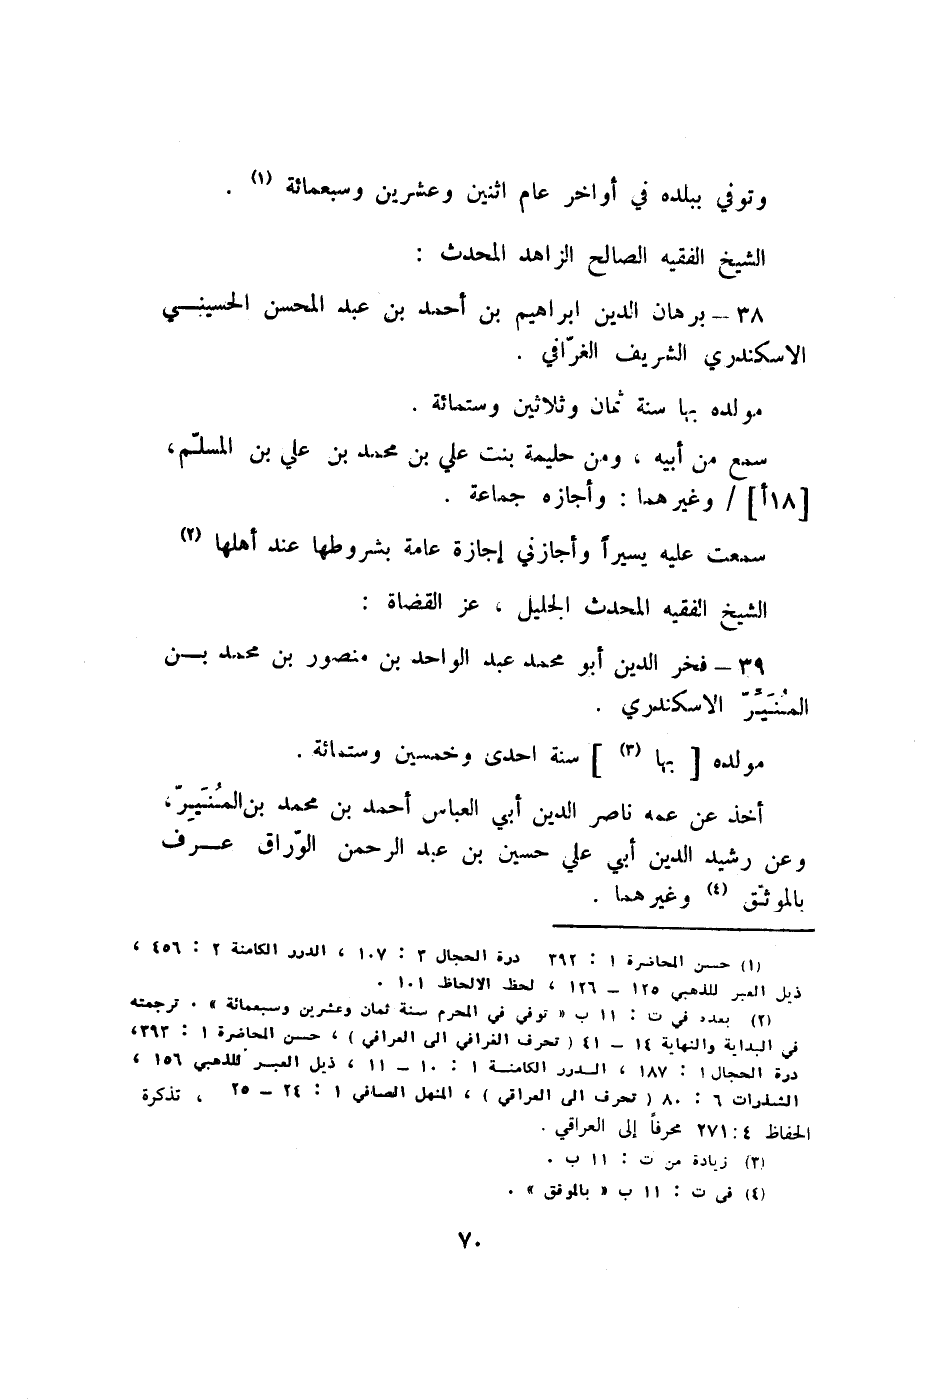 وتوفي ببلده في أواخر عام اثنين وعشرين وسبعمائة (١) .
الشيخ الفقيه الصالح الزاهد المحدث :
٣٨ – برهان الدين ابراهيم بن أحمد بن عبد المحسن الحسينـــي
الاسكندري الشريف الغرّافي .
مولده بها سنة ثمان وثلاثين وستمائة .
سمع من أبيه ، ومن حليمة بنت علي بن محمد بن علي بن المسلّم،
[١٨أ] / وغيرهما : وأجازه جماعة .
سمعت عليه يسيراً وأجازني إجازة عامة بشروطها عند أهلها (٢)
الشيخ الفقيه المحدث الجليل ، عز القضاة :
٣٩ – فخر الدين أبو محمد عبد الواحد بن منصور بن محمد بـــن
المُنَيَّرّ الاسكندري .
مولده [ بها (٣) ] سنة احدى وخمسين وستمائة .
أخذ عن عمه ناصر الدين أبي العباس أحمد بن محمد بن المُنَيِرّ،
وعن رشيد الدين أبي علي حسين بن عبد الرحمن الورّاق عـــرف
بالموثّق (٤) وغيرهما .
(١) حسن المحاضرة ١ : ٣٩٢ درة الحجال ٣ : ١٠٧ ، الدرر الكامنة ٢ : ٤٥٦ ،
ذيل العبر للذهبي ١٢٥ – ١٢٦ ، لحظ الالحاظ ١٠١ .
(٢) بعده في ت : ١١ ب « توفي في المحرم سنة ثمان وعشرين وسبعمائة » . ترجمته
في البداية والنهاية ١٤ – ٤١ ( تحرف الغرافي الى العرافي ) ، حسن المحاضرة ١ : ٣٩٣،
درة الحجال ١ : ١٨٧ ، الــدرر الكامنــة ١ : ١٠ – ١١ ، ذيل العبــر للذهبي ١٥٦ ،
الشذرات ٦ : ٨٠ ( تحرف الى العراقي ) ، المنهل الصافي ١ : ٢٤ – ٢٥ ، تذكرة
الحفاظ ٤ : ٢٧١ محرفاً إلى العراقي .
(٣) زيادة من ت : ١١ ب .
(٤) في ت : ١١ ب « بالموفق » .
٧٠